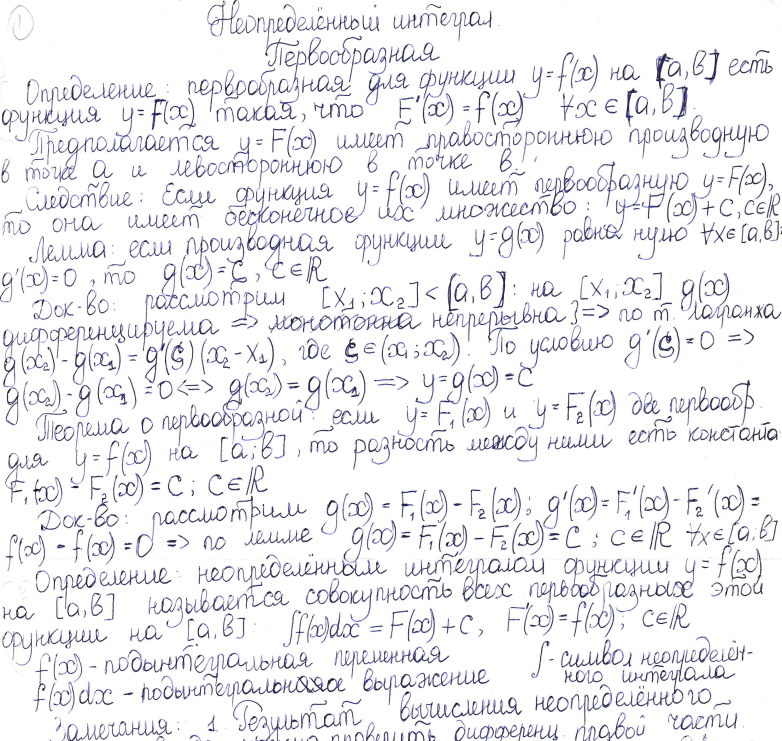 1
Неопределённый интеграл.
Первообразная
Определение: первообразная для функции y=f(x) на [a,b] есть
функция y=F(x) такая, что F'(x)=f(x) ∀x∈[a,b].
Предполагается y=F(x) имеет правостороннюю производную
в точке a и левостороннюю в точке b.
Следствие: Если функция y=f(x) имеет первообразную y=F(x),
то она имеет бесконечное их множество: y=F(x)+C, C∈ℝ
Лемма: если производная функции y=g(x) равна нулю ∀x∈[a,b]:
g'(x)=0, то g(x)=C, C∈ℝ
Док-во: рассмотрим [x₁;x₂]<[a,b]: на [x₁;x₂] g(x)
дифференцируема => монотонна непрерывна } => по т. Лагранжа
g(x₂)-g(x₁)=g'(ξ)(x₂-x₁), где ξ∈(x₁;x₂). По условию g'(ξ)=0 =>
g(x₂)-g(x₁)=0 <=> g(x₂)=g(x₁) => y=g(x)=C
Теорема о первообразной: если y=F₁(x) и y=F₂(x) две первообр.
для y=f(x) на [a;b], то разность между ними есть константа:
F₁(x)-F₂(x)=C; C∈ℝ
Док-во: рассмотрим g(x)=F₁(x)-F₂(x); g'(x)=F₁'(x)-F₂'(x)=
f(x)-f(x)=0 => по лемме g(x)=F₁(x)-F₂(x)=C; C∈ℝ ∀x∈[a;b]
Определение: неопределённым интегралом функции y=f(x)
на [a,b] называется совокупность всех первообразных этой
функции на [a,b]: ∫f(x)dx=F(x)+C, F'(x)=f(x); C∈ℝ
f(x) - подынтегральная переменная ∫-символ неопределён-
f(x)dx - подынтегральное выражение ного интеграла
Замечания: 1. Результат вычисления неопределённого
проверить дифференц. правой части